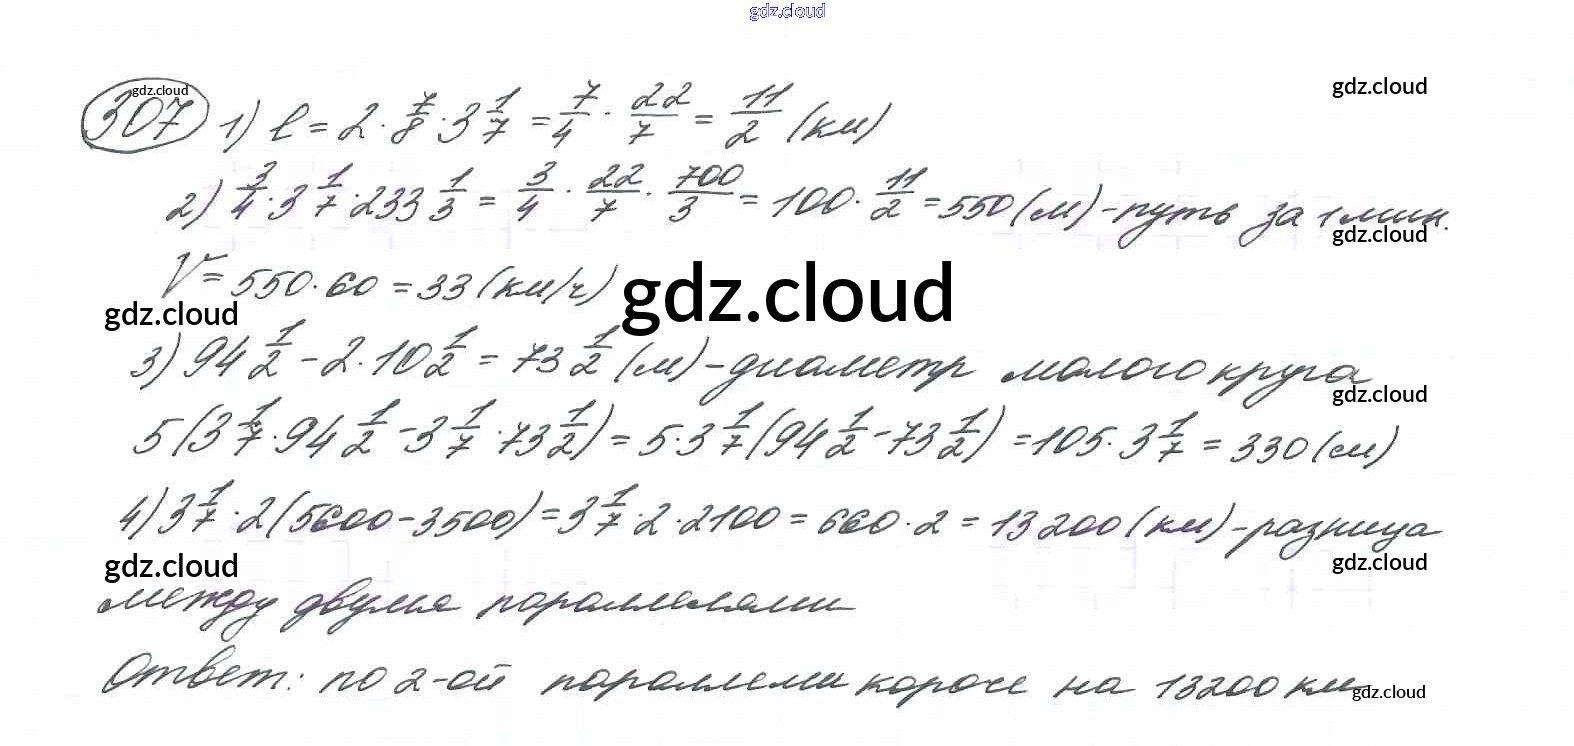 gdz.cloud
307 1) l = 2 · 7/8 · 3 1/7 = 7/4 · 22/7 = 11/2 (км)
gdz.cloud
gdz.cloud
2) 3/4 · 3 1/7 · 233 1/3 = 3/4 · 22/7 · 700/3 = 100 · 11/2 = 550 (м) - путь за 1 мин.
gdz.cloud
V = 550 · 60 = 33 (км/ч)
gdz.cloud
gdz.cloud
3) 94 1/2 - 2 · 10 1/2 = 73 1/2 (м) - диаметр малого круга
gdz.cloud
5 (3 1/7 · 94 1/2 - 3 1/7 · 73 1/2) = 5 · 3 1/7 (94 1/2 - 73 1/2) = 105 · 3 1/7 = 330 (см)
4) 3 1/7 · 2 (5600 - 3500) = 3 1/7 · 2 · 2100 = 660 · 2 = 13200 (км) - разница
gdz.cloud
gdz.cloud
между двумя параллелями
Ответ: по 2-ой параллели короче на 13200 км
gdz.cloud